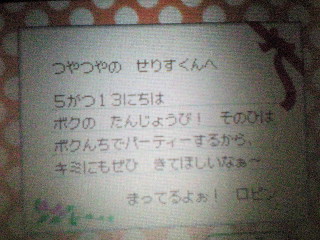 つやつやの せりすくんへ
5がつ13にちは
ボクの たんじょうび! そのひは
ボクんちでパーティーするから、
キミにもぜひ きてほしいなぁ~
まってるよぉ! ロビン